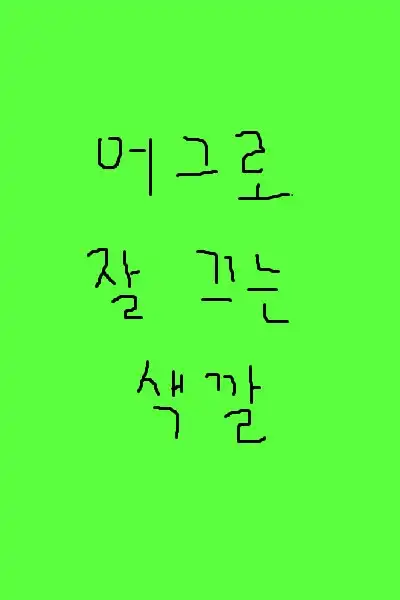 어그로
잘 끄는
색깔